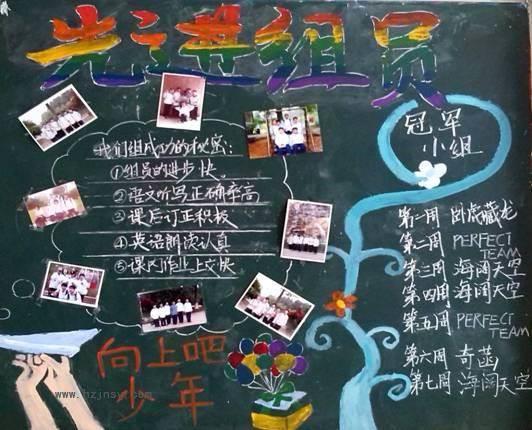 先进组员
我们组成功的秘密:
①组员的进步快.
②语文听写正确率高
③课后订正积极
④英语朗读认真
⑤课内作业上交快
冠军
小组
第一周 卧虎藏龙
第二周 PERFECT
TEAM
第三周 海阔天空
第四周 海阔天空
第五周 PERFECT
TEAM
第六周 奇函
第七周 海阔天空
向上吧
少年